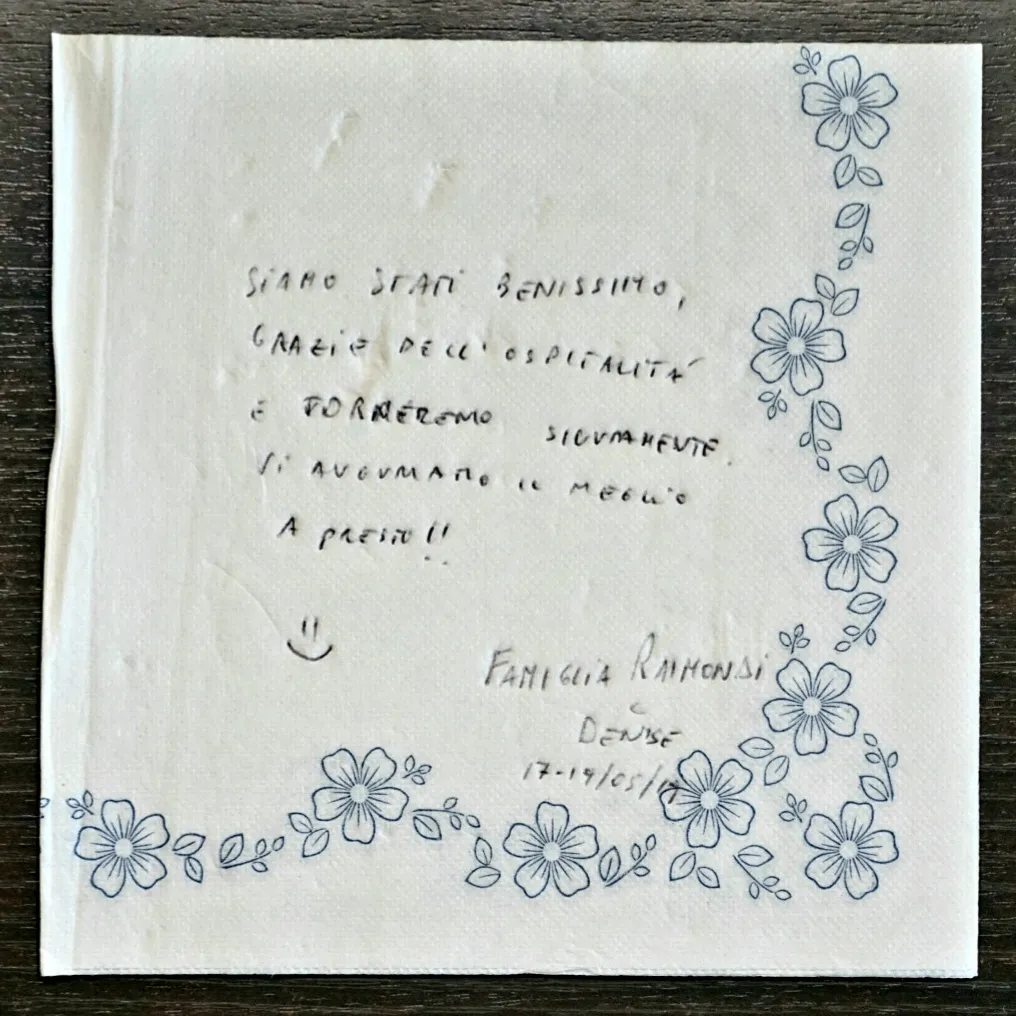 SIAMO STATI BENISSIMO,
GRAZIE DELL'OSPITALITÁ
E TORNEREMO SICURAMENTE.
VI AUGURIAMO IL MEGLIO
A PRESTO!!
FAMIGLIA RAIMONDI
E
DENISE
17-19/05/19